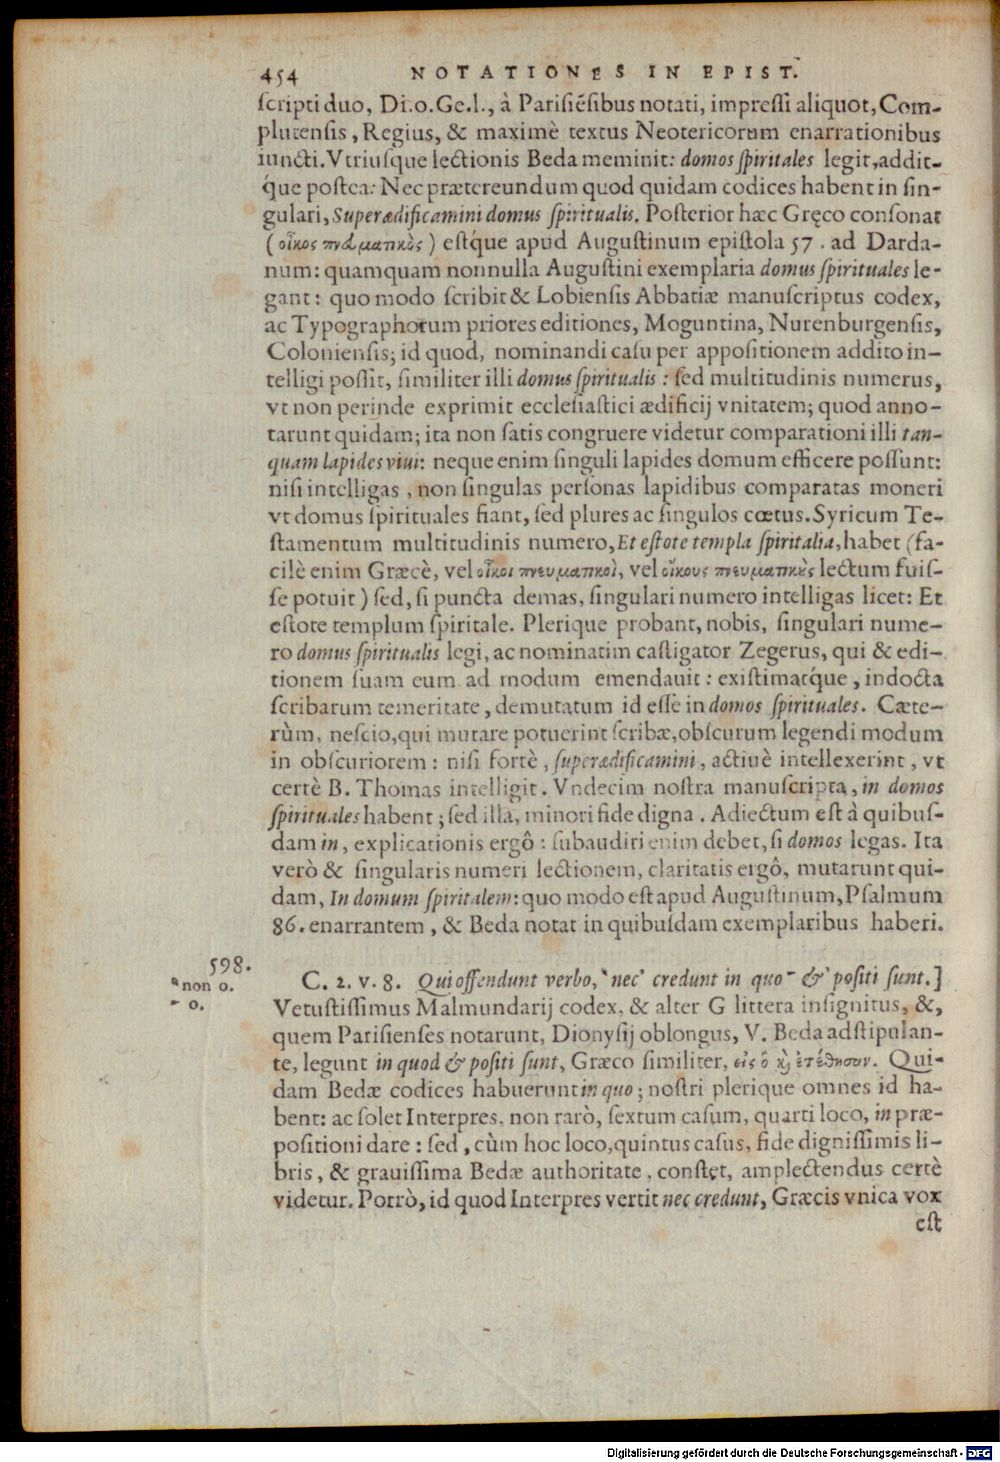 454 NOTATIONES IN EPIST.
ſcripti duo, Di.o.Ge.l., à Pariſiẽſibus notati, impreſſi aliquot, Com-
plutenſis, Regius, & maximè textus Neotericorum enarrationibus
iuncti. Vtriuſque lectionis Beda meminit: domos ſpiritales legit, addit-
q́ue poſtea: Nec prætereundum quod quidam codices habent in ſin-
gulari, Superædificamini domus ſpiritualis. Poſterior hæc Gręco conſonat
(οἶκος πνευματικὸς) eſtq́ue apud Auguſtinum epiſtola 57. ad Darda-
num: quamquam nonnulla Auguſtini exemplaria domus ſpirituales le-
gant: quo modo ſcribit & Lobienſis Abbatiæ manuſcriptus codex,
ac Typographorum priores editiones, Moguntina, Nurenburgenſis,
Colonienſis; id quod, nominandi caſu per appoſitionem addito in-
telligi poſſit, ſimiliter illi domus ſpiritualis: ſed multitudinis numerus,
vt non perinde exprimit eccleſiaſtici ædificij vnitatem; quod anno-
tarunt quidam; ita non ſatis congruere videtur comparationi illi tan-
quam lapides viui: neque enim ſinguli lapides domum efficere poſſunt:
niſi intelligas, non ſingulas perſonas lapidibus comparatas moneri
vt domus ſpirituales fiant, ſed plures ac ſingulos cœtus. Syricum Te-
ſtamentum multitudinis numero, Et eſtote templa ſpiritalia, habet (fa-
cilè enim Græcè, vel οἶκοι πνευματικοὶ, vel οἴκους πνευματικὺς lectum fuiſ-
ſe potuit) ſed, ſi puncta demas, ſingulari numero intelligas licet: Et
eſtote templum ſpiritale. Plerique probant, nobis, ſingulari nume-
ro domus ſpiritualis legi, ac nominatim caſtigator Zegerus, qui & edi-
tionem ſuam eum ad modum emendauit: exiſtimatq́ue, indocta
ſcribarum temeritate, demutatum id eſſe in domos ſpirituales. Cæte-
rùm, neſcio, qui mutare potuerint ſcribæ, obſcurum legendi modum
in obſcuriorem: niſi fortè, ſuperædificamini, actiuè intellexerint, vt
certè B. Thomas intelligit. Vndecim noſtra manuſcripta, in domos
ſpirituales habent; ſed illa, minori fide digna. Adiectum eſt à quibuſ-
dam in, explicationis ergô: ſubaudiri enim debet, ſi domos legas. Ita
verò & ſingularis numeri lectionem, claritatis ergô, mutarunt qui-
dam, In domum ſpiritalem: quo modo eſt apud Auguſtinum, Pſalmum
86. enarrantem, & Beda notat in quibuſdam exemplaribus haberi.
598.
non o.
o.
C. 2. v. 8. Qui offendunt verbo, nec credunt in quo & poſiti ſunt.]
Vetuſtiſſimus Malmundarij codex, & alter G littera inſignitus, &,
quem Pariſienſes notarunt, Dionyſij oblongus, V. Beda adſtipulan-
te, legunt in quod & poſiti ſunt, Græco ſimiliter, εἰς ὃ ϗ̀ ἐτέθησαν. Qui-
dam Bedæ codices habuerunt in quo; noſtri plerique omnes id ha-
bent: ac ſolet Interpres, non rarò, ſextum caſum, quarti loco, in præ-
poſitioni dare: ſed, cùm hoc loco, quintus caſus, fide digniſſimis li-
bris, & grauiſſima Bedæ authoritate, conſtęt, amplectendus certè
videtur. Porrò, id quod Interpres vertit nec credunt, Græcis vnica vox
eſt
Digitalisierung gefördert durch die Deutsche Forschungsgemeinschaft - DFG